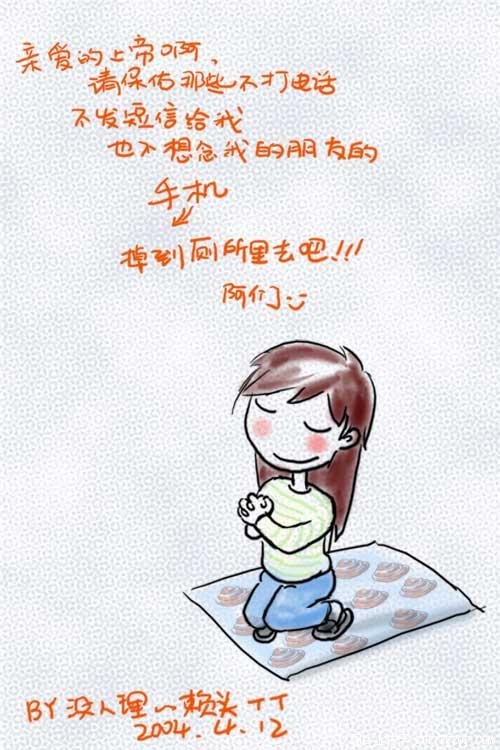 亲爱的上帝啊，
请保佑那些不打电话
不发短信给我
也不想念我的朋友的
手机
掉到厕所里去吧!!!
阿们
BY 没人理~赖头TT
2004.4.12